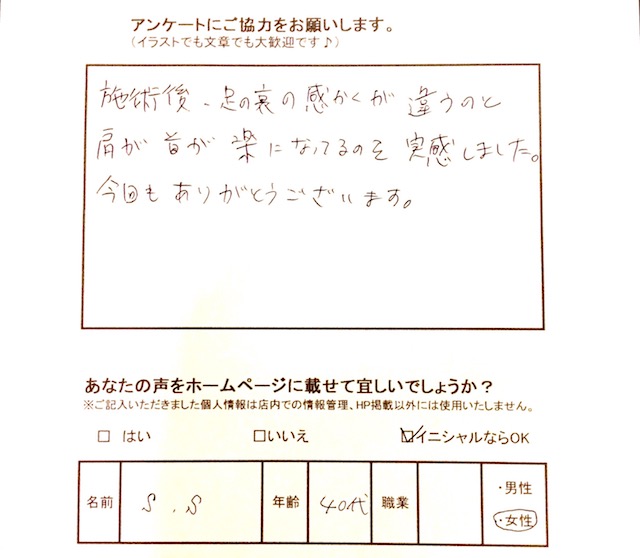 アンケートにご協力をお願いします。
(イラストでも文章でも大歓迎です♪)
施術後、足の裏の感かくが違うのと
肩が首が楽になってるのを実感しました。
今回もありがとうございます。
あなたの声をホームページに載せて宜しいでしょうか?
※ご記入いただきました個人情報は店内での情報管理、HP掲載以外には使用いたしません。
□ はい □いいえ ☑イニシャルならOK
名前 S.S 年齢 40代 職業 ・男性
・女性